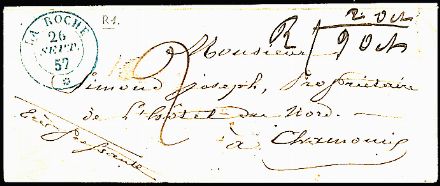 LA ROCHE
26
SEPT.
57
R4.
R
2 Oct
9 Oct
2
Monsieur
Simond Joseph, Propriétaire
de l'hotel du Nord.
à Chamounix
très pressante